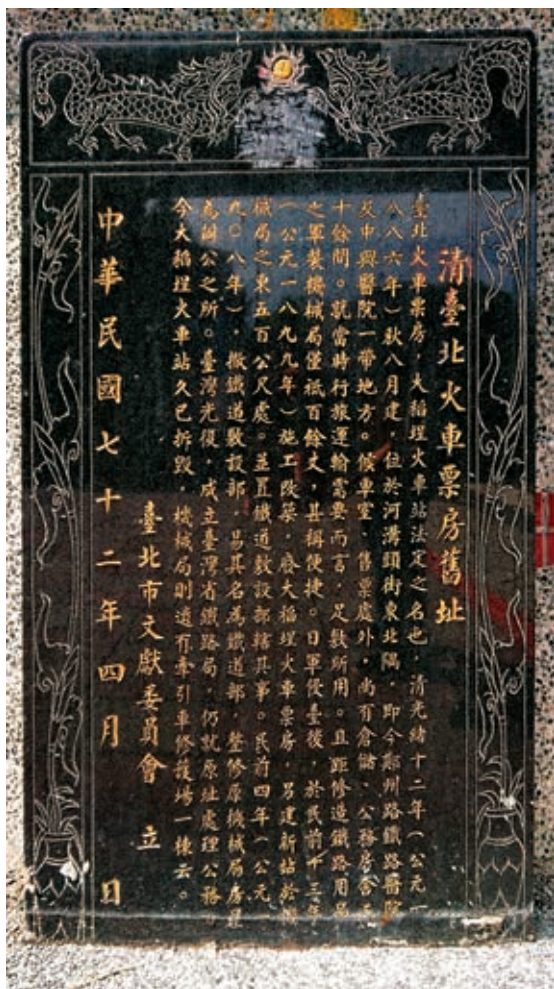 清臺北火車票房舊址
臺北火車票房，大稻埕火車站法定之名也，清光緒十二年（公元一
八八六年）秋八月建，位於河溝頭街東北隅，即今鄭州路鐵路醫院
及中興醫院一帶地方。候車室、售票處外，尚有倉儲、公務房舍三
十餘間。就當時行旅運輸需要而言，足敷所用。且距修造鐵路用品
之軍裝機械局僅祇百餘丈，甚稱便捷。日軍侵臺後，於民前十三年
（公元一八九九年）施工改築，啓大稻埕火車票房，另建新站於機
械局之東五百公尺處。並置鐵道敷設部轄其事。民前四年（公元一
九〇八年），撤鐵道敷設部，易其名為鐵道部，整修原機械局房屋
為辦公之所。臺灣光復，成立臺灣省鐵路局，仍就原址處理公務，
今大稻埕火車站久已拆毀，機械局則遺有牽引車修護場一棟云。
臺北市文獻委員會 立
中華民國七十二年四月 日